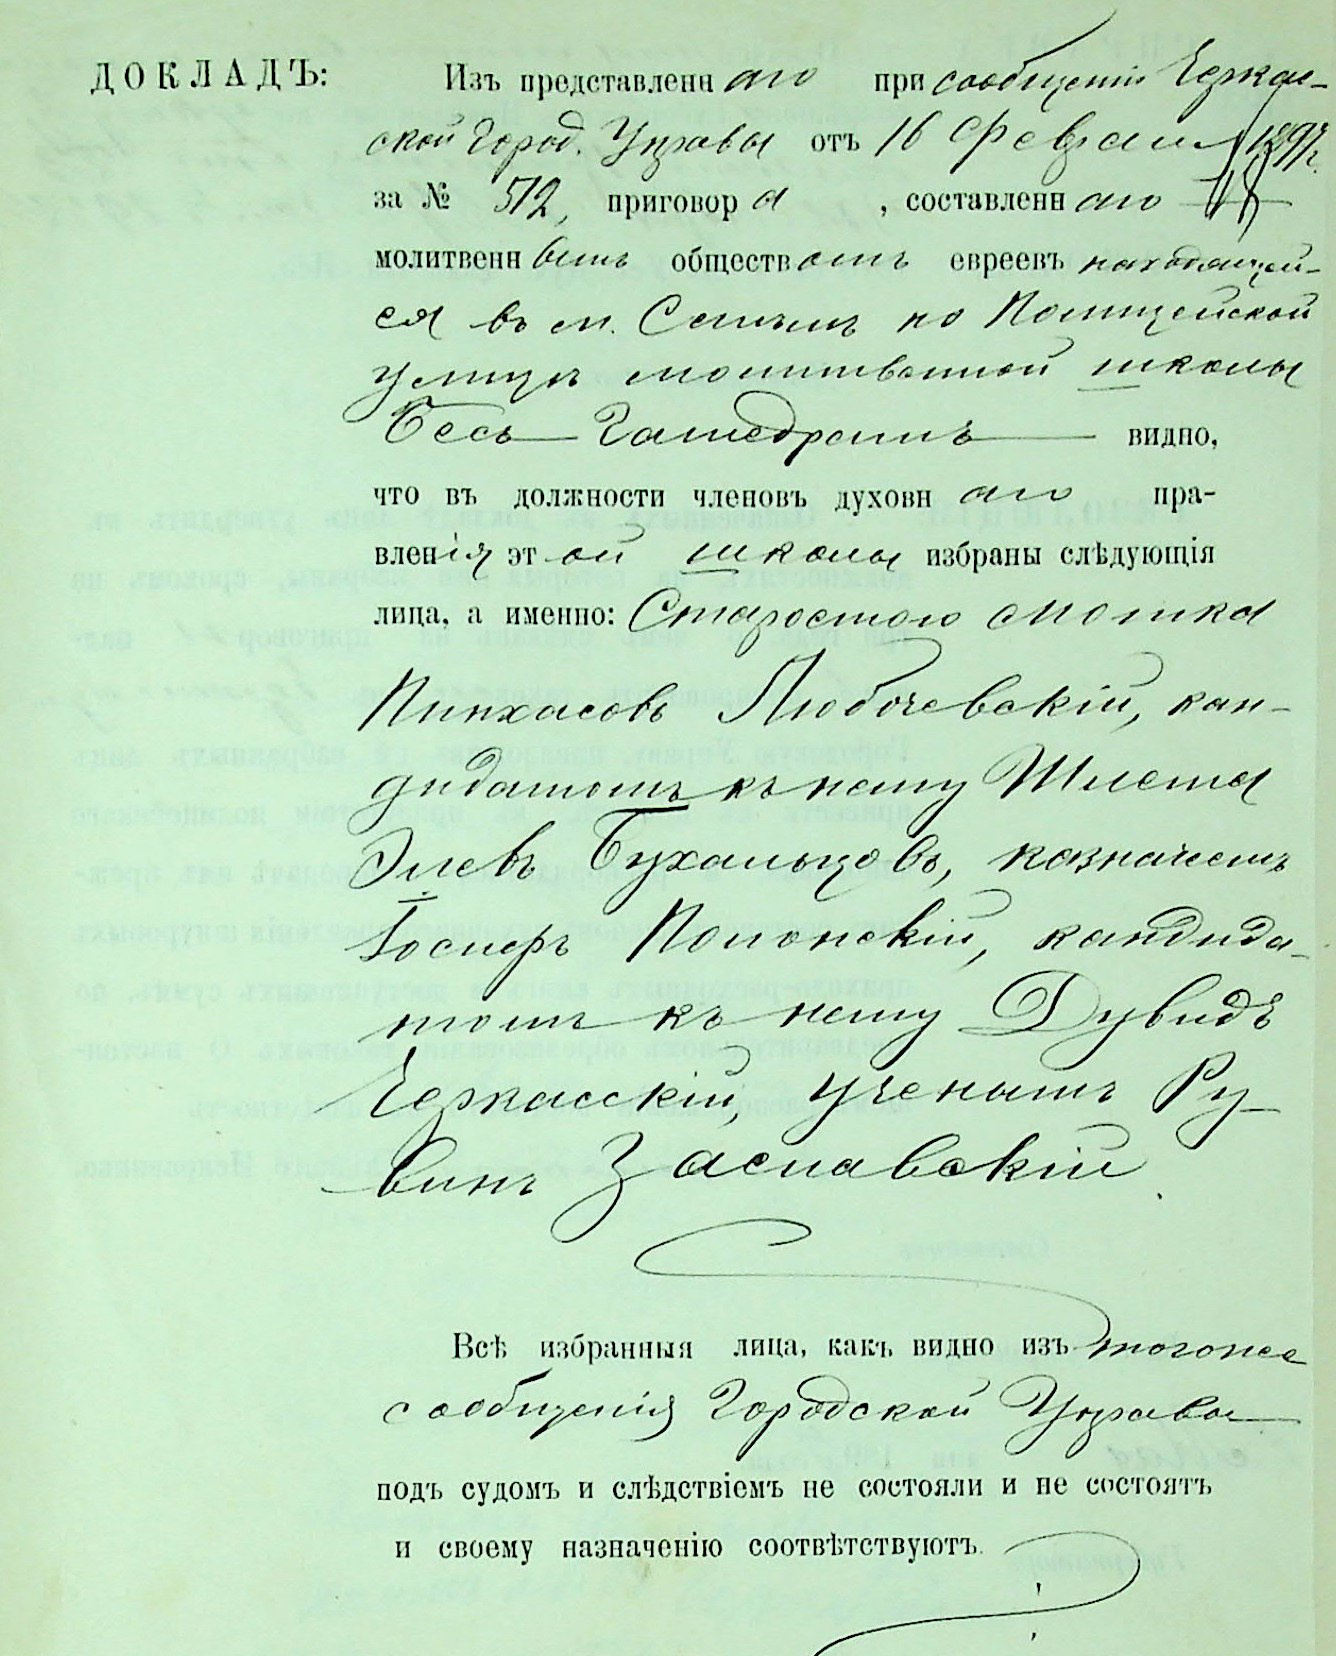 ДОКЛАДЪ: Изъ представленнаго при сообщеніи Черкас-
ской Город. Управы отъ 16 Февраля 1897 г.
за № 512, приговора, составленнаго
молитвеннымъ обществомъ евреевъ находящей-
ся въ м. по Полицейской
улицѣ молитвенной школы
Бесъ Гамедрашъ видно,
что въ должности членовъ духовнаго пра-
вленія этой школы избраны слѣдующія
лица, а именно: Старостою Мошка
Пинхасовъ Любочевскій, кан-
дидатомъ къ нему Шлема
Элевъ Бухальцовъ, казначеемъ
Іосифъ Полонскій, кандида-
томъ къ нему Дувидъ
Черкасскій, ученымъ Ру-
винъ Заславскій
Всѣ избранныя лица, какъ видно изъ тогоже
сообщенія Городской Управы
подъ судомъ и слѣдствіемъ не состояли и не состоятъ
и своему назначенію соотвѣтствуютъ.